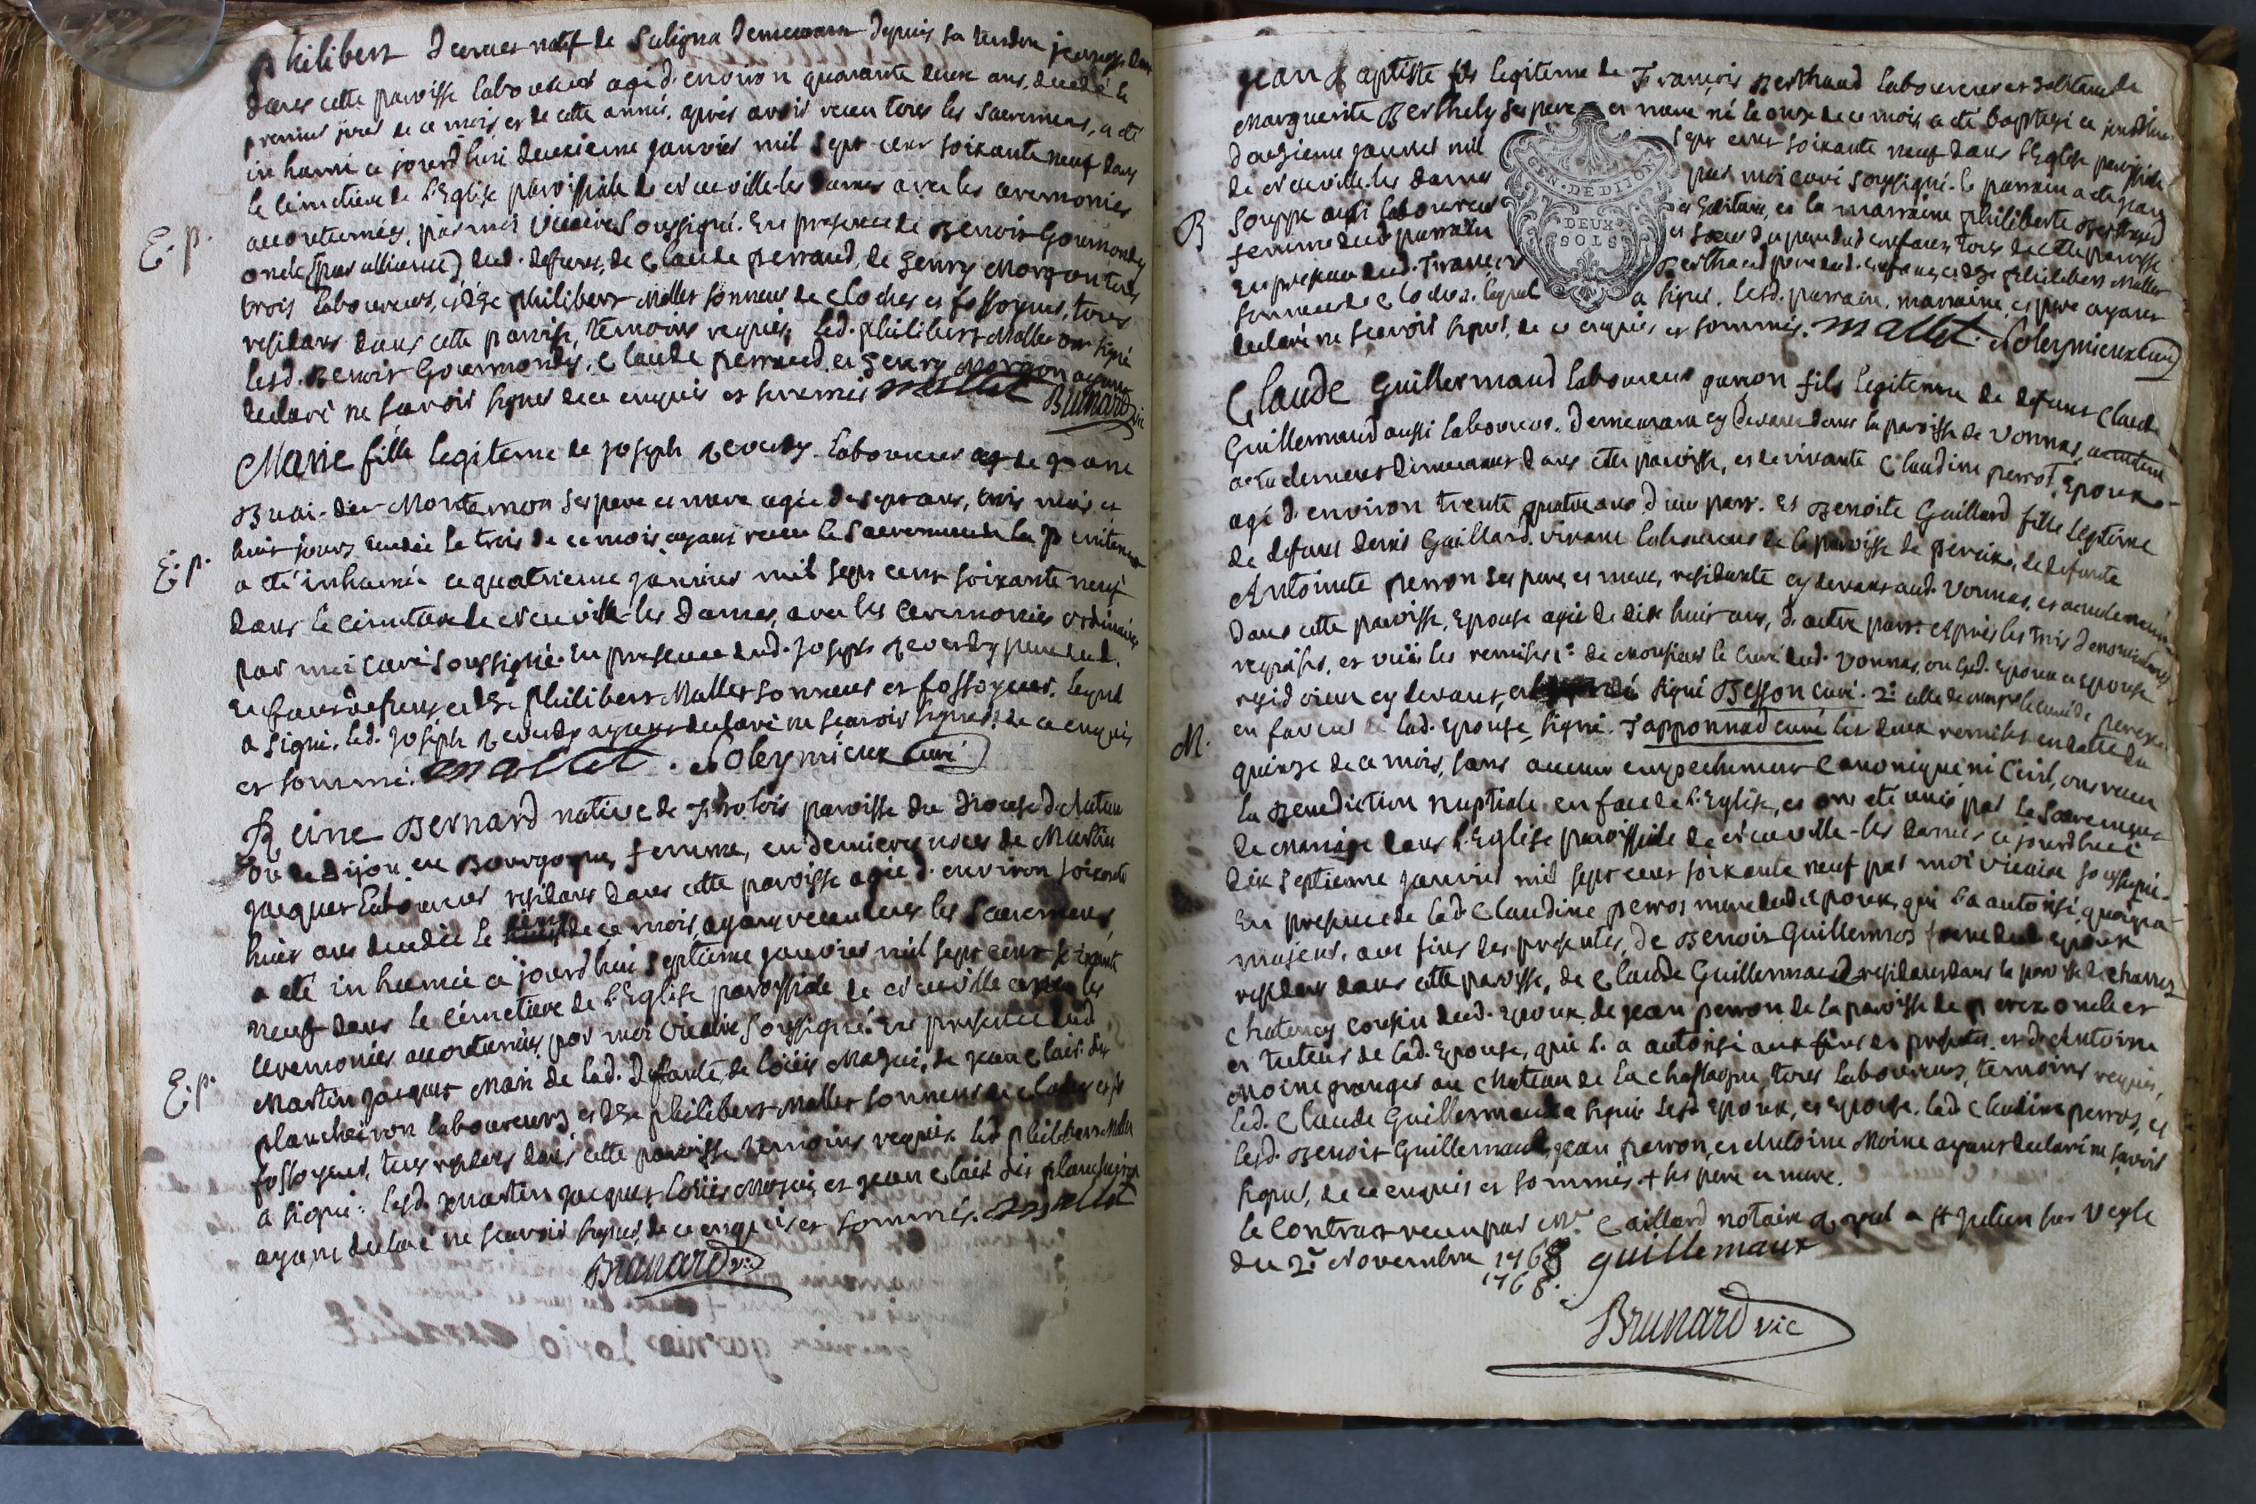 Philibert natif de Suligna Demeurant depuis sa tendre jeunesse
dans cette paroisse laboureur agé d'environ quarante deux ans, decedé le
premier jour de ce mois et de cette année, après avoir receu tous les sacremens, a été
inhumé ce jourd'hui deuxieme janvier mil sept cent soixante neuf dans
le cimetiere de l'Eglise paroissiale de neuville-les Dames avec les ceremonies
E. p.
accoutumées, par moi Vicaire Soussigné. En presence de Benoit Gourmondy
oncle (par alliance) dud. defunt, de Claude perraud, de henry Morgon tous
trois laboureurs, et de Philibert Mallet sonneur de cloches et fossoyeur, tous
residans dans cette paroisse, temoins requis, led. philibert Mallet ont signé
lesd. Benoit Gourmondy, Claude perraud, et henry Morgon ayant
declaré ne savoir signer de ce enquis et sommés mallet Brunard vic
Marie fille legitime de joseph Reverdy laboureur et de jeanne
Buai. Montemon ses pere et mere agée de sept ans, trois mois et
huit jours, decedée le trois de ce mois ayant receu le Sacrement de la Penitence
E. p.
a été inhumée ce quatrieme janvier mil sept cent soixante neuf
dans le cimetiere de neuville-les Dames, avec les ceremonies ordinaires
par moi curé soussigné. En presence dud. joseph Reverdy pere de lad.
Enfant defunte et de Philibert Mallet sonneur et fossoyeur, lequel
a signé, led. joseph Reverdy ayant declaré ne scavoir signer de ce enquis
et sommé. mallet. Soleymieux curé
Reine Bernard native de paroisse du Diocese d'Autun
ou de Dijon en Bourgogne, femme, en dernieres noces de Martin
jacquet laboureur residant dans cette paroisse agée d'environ soixante
huit ans decedée le cinq de ce mois, ayant receu tous les Sacremens,
a été inhumée ce jourd'hui septieme janvier mil sept cent soixante
neuf dans le cimetiere de l'Eglise paroissiale de neuville avec les
ceremonies accoutumées par moi vicaire soussigné. En presence dud.
E. p.
Martin jacquet Mari de lad. defunte, de Loüis, de jean Clair dit
plancheiron laboureurs et de philibert Mallet sonneur de cloches et
fossoyeur, tous residans dans cette paroisse temoins requis. led. philibert Mallet
a signé. lesd. Martin jacquet, Loüis et jean Clair dit plancheiron
ayant declaré ne scavoir signer, de ce enquis et sommés. mallet
Brunard vic
jean Baptiste fils legitime de François Berthaud laboureur et de
Marguerite Berthely ses pere et mere né le onze de ce mois, a été baptisé ce jourd'hui
douzieme janvier mil sept cent soixante neuf dans l'Eglise paroissiale
de neuville-les dames par moi curé soussigné. le parrain a été jean
B
aussi laboureur et la marraine philiberte Berthaud
femme dud. parrain et soeur du pere dud. enfant, tous de cette paroisse
En presence dud. François Berthaud pere dud. enfant, et de Philibert Mallet
GEN. DE DIJON
DEUX
SOLS
sonneur de cloches, lequel a signé. lesd. parrain, marraine, et pere ayant
declaré ne scavoir signer, de ce enquis et sommés. mallet. Soleymieux curé
Claude Guillermaud laboureur garçon fils legitime de defunt Claude
Guillermaud aussi laboureur. Demeurant cy devant dans la paroisse de Vonnas,
actuellement demeurant dans cette paroisse, et de vivante Claudine perrot, Epoux
agé d'environ trente quatre ans d'une part. Et Benoite Guillard fille legitime
de defunt Denis Guillard vivant laboureur de la paroisse de perex, et de defunte
Antoinette perron ses pere et mere, residante cy devant aud. Vonnas, et actuellement
dans cette paroisse, Epouse agée de dix huit ans, d'autre part. après les trois denonciations
requises, et vuës les remises 1°. de Monsieur le Curé dud. Vonnas, ou lesd. Epoux et epouse
cy devant, signé Besson curé. 2°. celle de mr le curé de perex
M.
en faveur de lad. Epouse, signé. Tapponnad curé les deux remises en datte du
quinze de ce mois, sans aucun empechement Canonique ni Civil, ont receu
la Benediction nuptiale en face de l'Eglise, et ont été unis par le Sacrement
de Mariage dans l'Eglise paroissiale de neuville-les dames ce jourd'huit
dix septieme janvier mil sept cent soixante neuf par moi vicaire soussigné.
En presence de lad. Claudine perrot mere dud. epoux, qui l'a autorisé, quoique
majeur, aux fins des presentes, de Benoit Guillermod frere dud. epoux
residant dans cette paroisse, de Claude Guillermaud residant dans la paroisse de
Chatenay cousin dud. epoux, de jean perron de la paroisse de perex oncle et
et tuteur de lad. Epouse, qui l'a autorisé aux fins des presentes, et d'Antoine
Moine granger au chateau de la Chassagne, tous laboureurs, temoins requis,
led. Claude Guillermaud a signé lesd. Epoux, et Epouse, lad. Claudine perrot, et
lesd. Benoit Guillermaud, jean perron, et Antoine Moine ayant declaré ne savoir
signer, de ce enquis et sommés. + ses pere et mere.
le Contract receu par me. Caillard notaire Royal a st julien sur Veyle
du 2e. Novembre 1768 guillemaux
1768.
Brunard vic